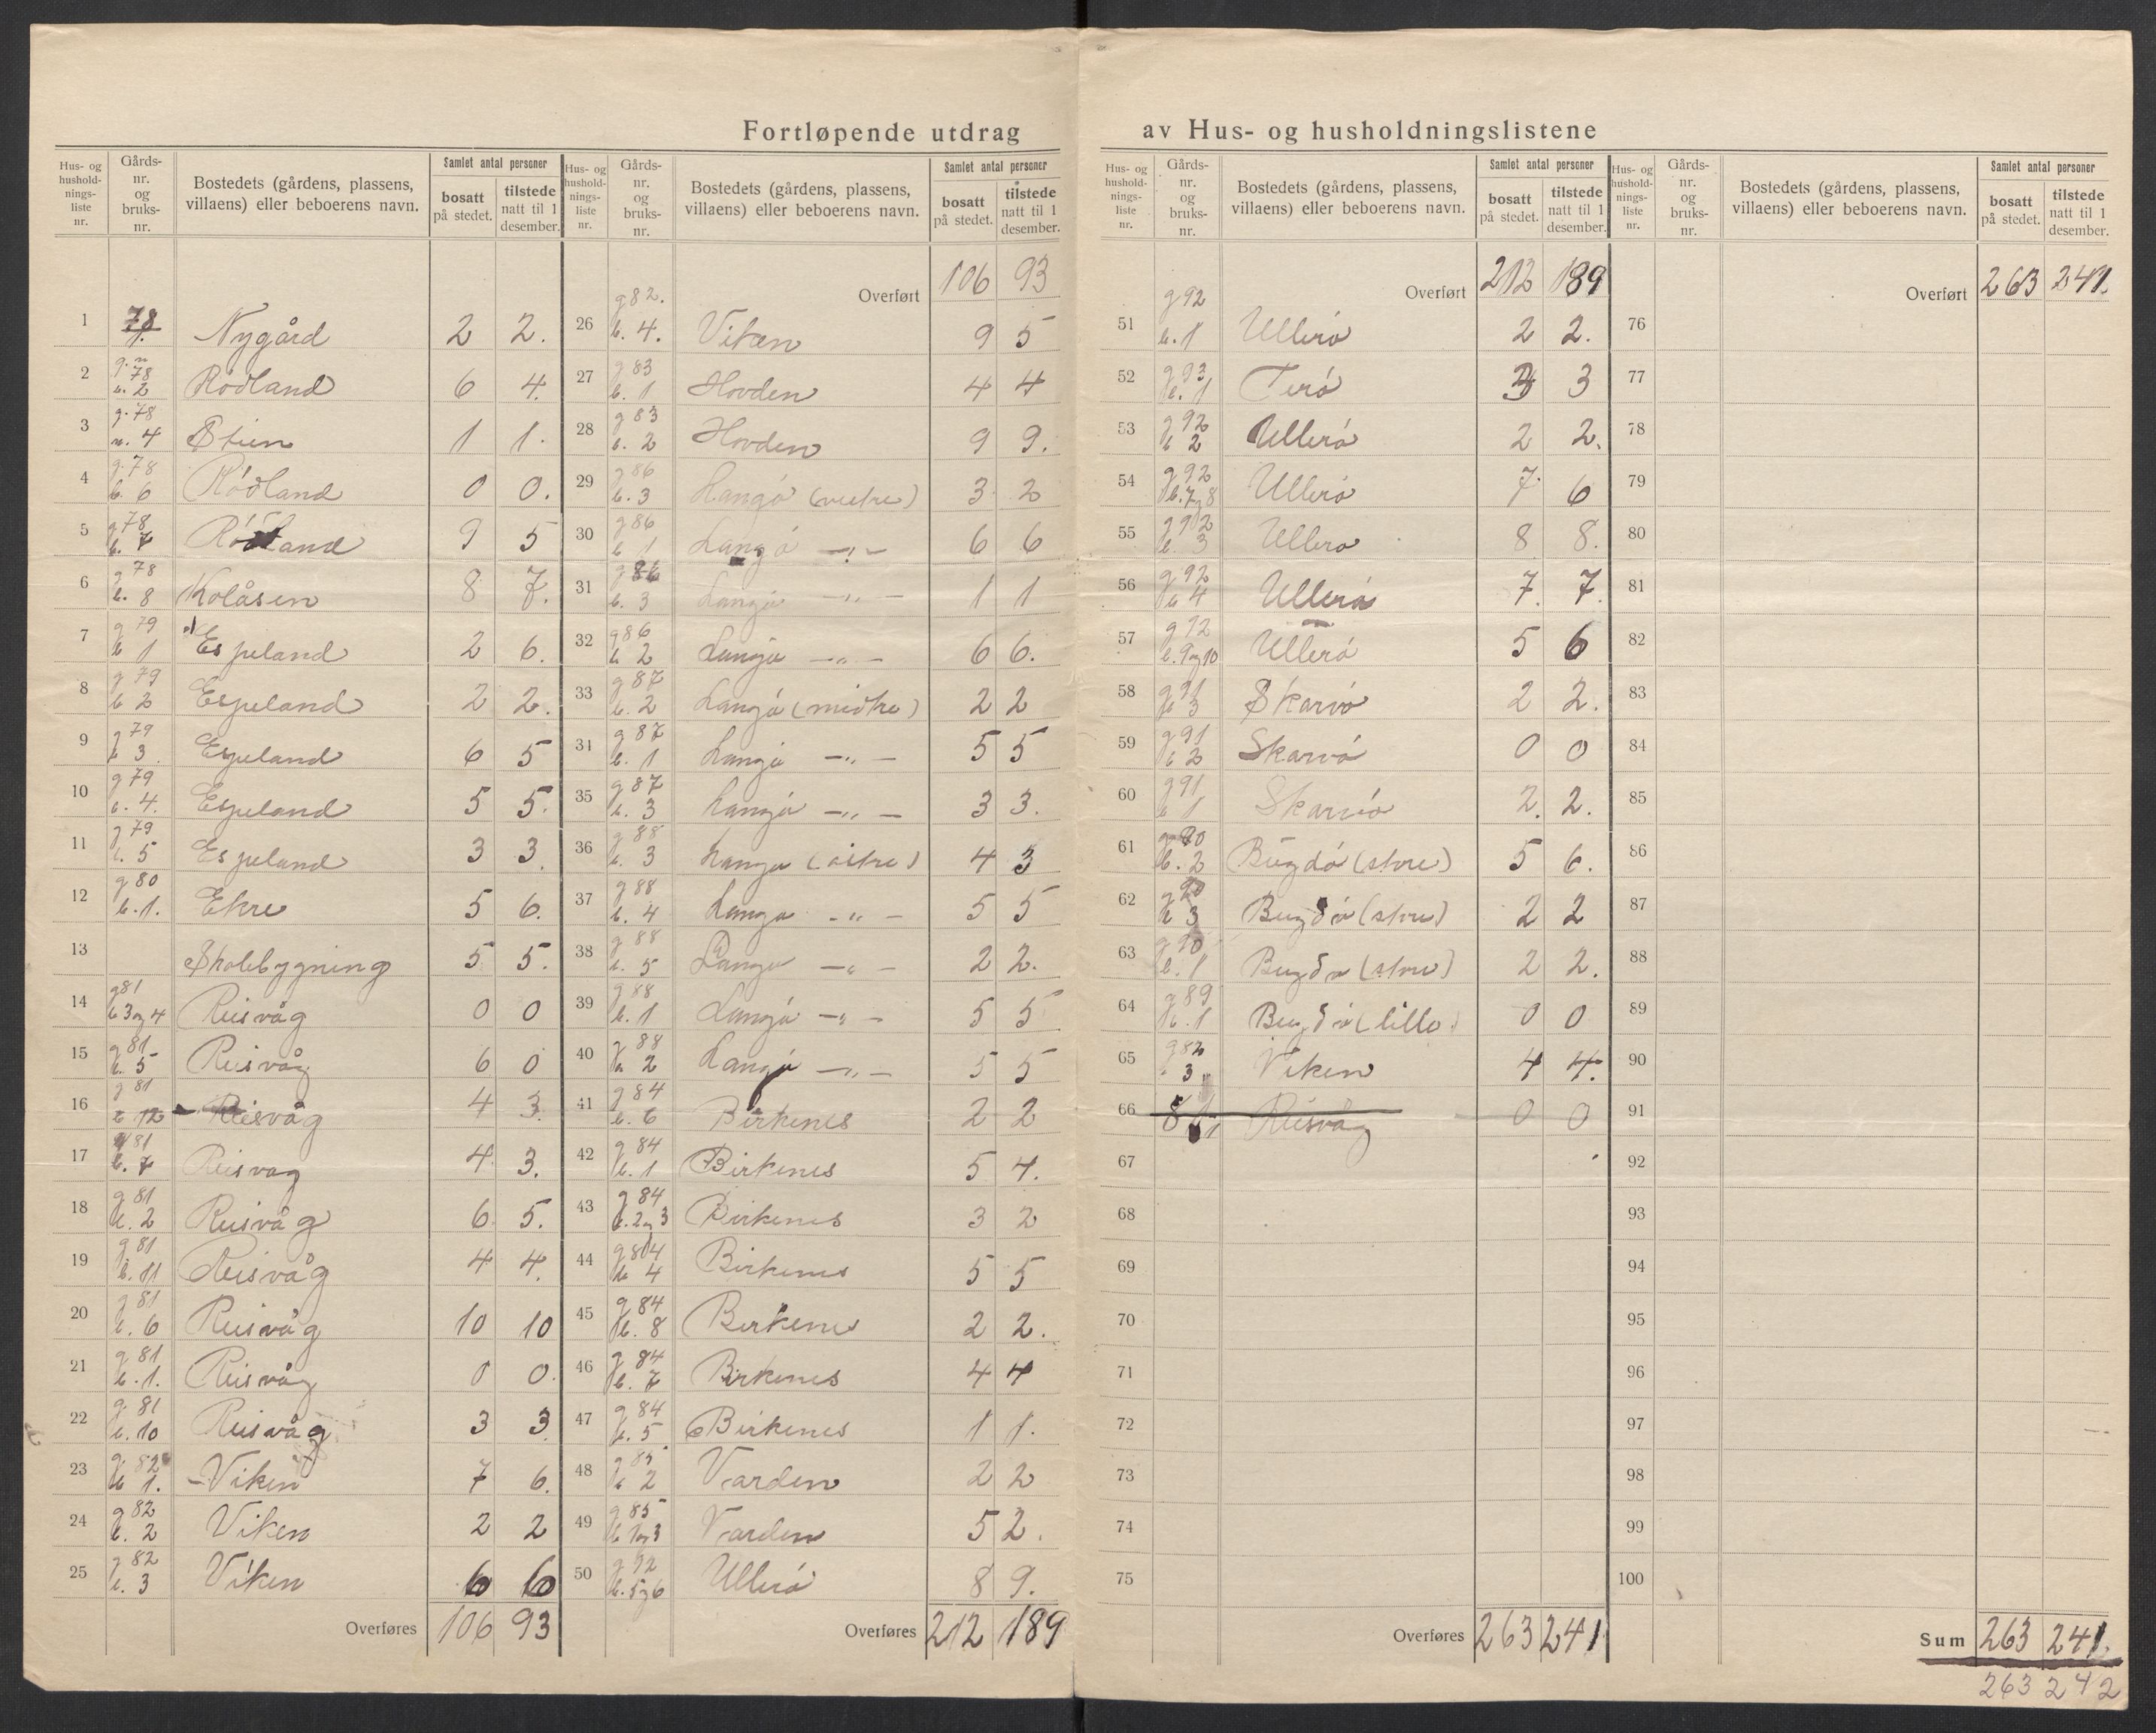 Fortløpende utdrag av Hus- og husholdningslistene
Hus- og husholdnings-liste nr. | Gårds-nr. og bruks-nr. | Bostedets (gårdens, plassens, villaens) eller beboerens navn. | Samlet antal personer: bosatt på stedet. | tilstede natt til 1 desember.
1 78 Nygård 2 2.
2 g.n 78 b. 2 Rödland 6 4.
3 g. 78 n. 4 Stien 1 1.
4 g. 78 b. 6 Rödland 0 0.
5 g 78 b. 7 Rödland 9 5
6 g 78 b. 8 Kolåsen 8 7.
7 g 79 b 1 Espeland 2 6.
8 g 79 b 2 Espeland 2 2.
9 g 79 b 3. Espeland 6 5
10 g 79 b. 4. Espeland 5 5.
11 g 79 b. 5 Espeland 3 3.
12 g 80 b. 1. Ekre 5 6.
13 Skolebygning 5 5.
14 g 81 b 3 og 4 Reisvåg 0 0
15 g 81 b. 5 Reisvåg 6 0
16 g 81 b 12 Reisvåg 4 3.
17 g 81 b. 7 Reisvag 4 3.
18 g 81 b. 2 Reisvåg 6 5.
19 g 81 b. 11 Reisvåg 4 4.
20 g 81 b. 6 Reisvåg 10 10
21 g 81 b. 1. Reisvåg 0 0.
22 g. 81 b. 10 Reisvåg 3 3
23 g. 82 b 1. Viken 7 6.
24 g 82 b. 2 Viken 2 2
25 g 82 b. 3 Viken 6 6
Overføres 106 93
Hus- og husholdnings-liste nr. | Gårds-nr. og bruks-nr. | Bostedets (gårdens, plassens, villaens) eller beboerens navn. | Samlet antal personer: bosatt på stedet. | tilstede natt til 1 desember.
Overført 106 93
26 g 82. b. 4. Viken 9 5
27 g 83 b. 1 Hovden 4 4
28 g 83 b. 2 Hovden 9 9.
29 g 86 b. 3 Langö (vestre) 3 2
30 g 86 b 1 Langö —„— 6 6
31 g 86 b. 3 Langö —„— 1 1
32 g 86 b 2 Langö —„— 6 6.
33 g 87 b. 2 Langö (midtre) 2 2
31 g 87 b. 1 Langö —„— 5 5
35 g 87 b. 3 Langö —„— 3 3.
36 g 88 b. 3 Langö (östre) 4 3
37 g 88 b. 4 Langö —„— 5 5
38 g 88 b. 5 Langö —„— 2 2.
39 g 88 b. 1 Langö —„— 5 5
40 g 88 b 2 Langö —„— 5 5
41 g 84 b. 6 Birkenes 2 2
42 g 84 b. 1 Birkenes 5 4.
43 g 84 b. 2 og 3 Birkenes 3 2
44 g 84 b 4 Birkenes 5 5
45 g 84 b. 8 Birkenes 2 2.
46 g 84 b. 7 Birkenes 4 4
47 g 84 b. 5 Birkenes 1 1.
48 g 85 b 2 Varden 2 2
49 g 85 b 1 og 3 Varden 5 2.
50 g 92 b. 5 og 6 Ullerö 8 9.
Overføres 212 189
Hus- og husholdnings-liste nr. | Gårds-nr. og bruks-nr. | Bostedets (gårdens, plassens, villaens) eller beboerens navn. | Samlet antal personer: bosatt på stedet. | tilstede natt til 1 desember.
Overført 212 189
51 g 92 b. 1 Ullerö 2 2.
52 g 93 b. 1 Terö 3 3
53 g 92 b 2 Ullerö 2 2.
54 g 92 b. 7 og 8 Ullerö 7 6
55 g 92 b. 3 Ullerö 8 8.
56 g 92 b 4 Ullerö 7. 7.
57 g 92 b. 9 og 10 Ullerö 5 6
58 g 91 b 3 Skarvö 2 2.
59 g 91 b 2 Skarvö 0 0
60 g 91 b 1 Skarvö 2. 2.
61 g 90 b. 2 Bugdö (store) 5 6.
62 g 90 b 3 Bugdö (store) 2 2
63 g 90 b. 1 Bugdö (store) 2 2.
64 g 89 b. 1 Bugdö (lille) 0 0
65 g 82 b 3 Viken 4 4.
66 81 1 Reisvåg 0 0
67
68
69
70
71
72
73
74
75
Overføres 263 241
Hus- og husholdnings-liste nr. | Gårds-nr. og bruks-nr. | Bostedets (gårdens, plassens, villaens) eller beboerens navn. | Samlet antal personer: bosatt på stedet. | tilstede natt til 1 desember.
Overført 263 241.
76
77
78
79
80
81
82
83
84
85
86
87
88
89
90
91
92
93
94
95
96
97
98
99
100
Sum 263 241.
263 242